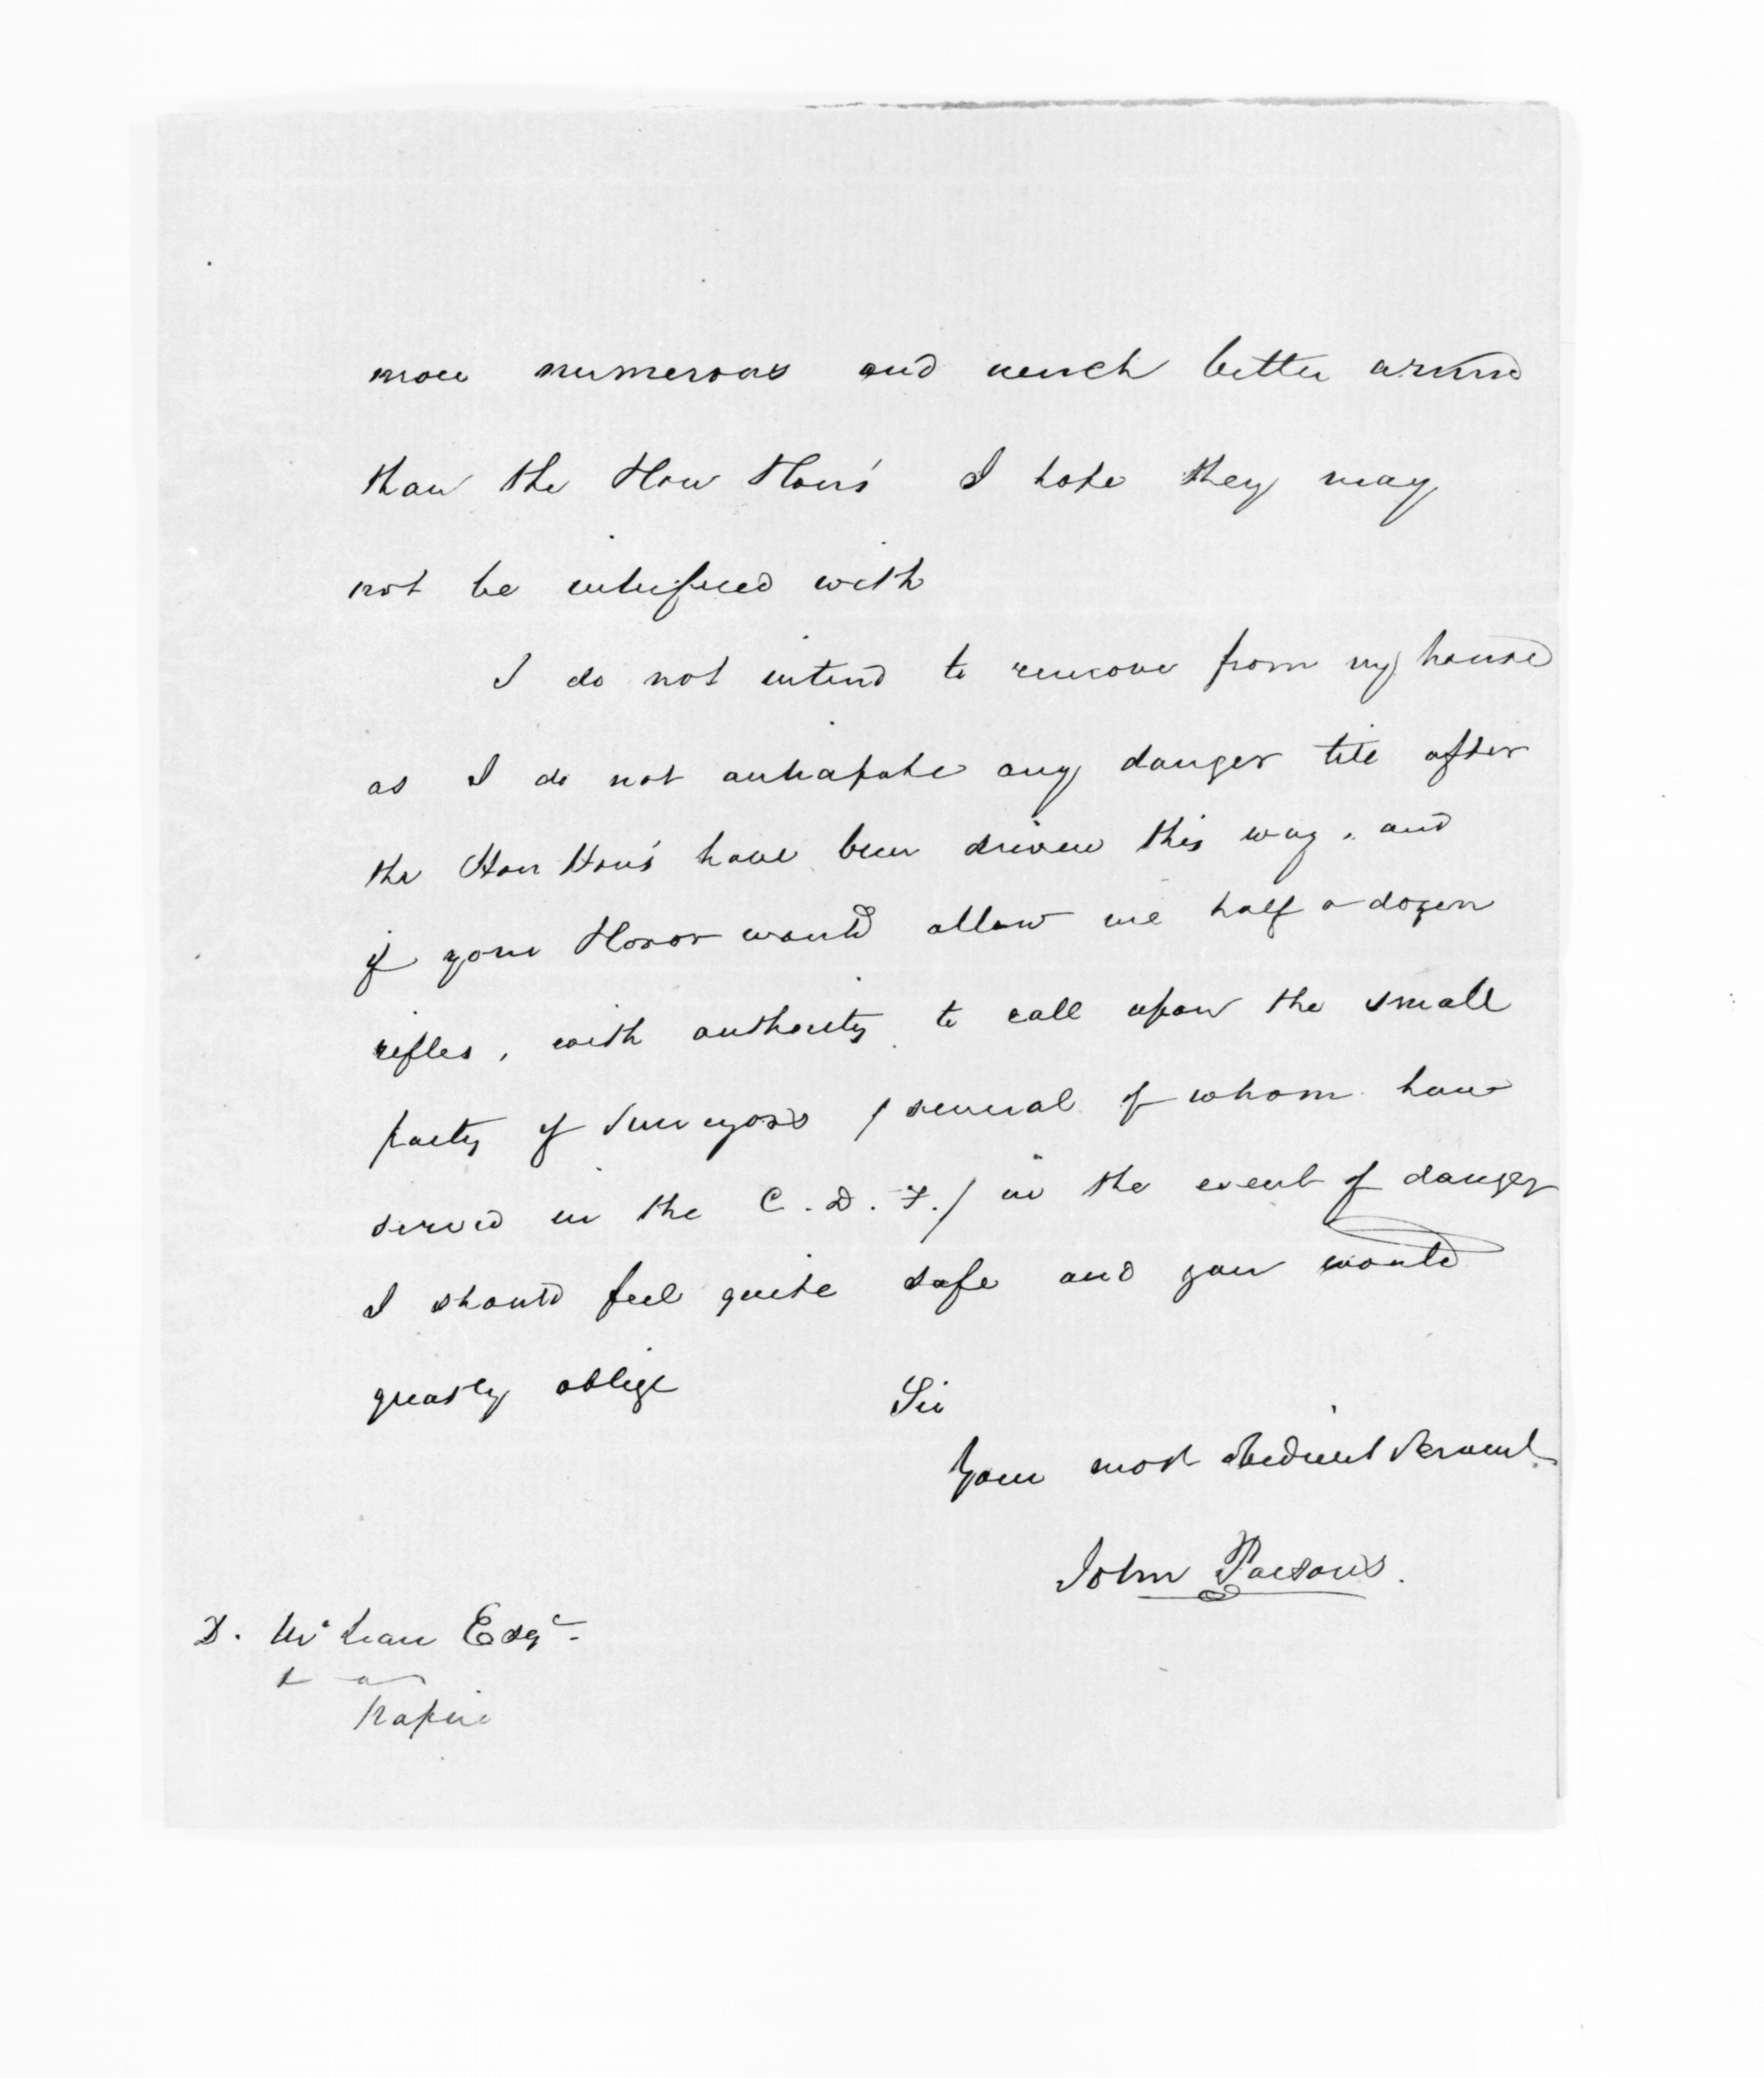 more numerous and much better armed
than the Hau Hau's I hope they may
not be interfered with
I do not intend to remove from my house
as I do not anticipate any danger till after
the Hau Hau's have been driven this way, and
if your Honor would allow me half a dozen
rifles, with authority to call upon the small
party of Surveyors / several of whom have
served in the C. D. F. / in the event of danger
I should feel quite safe and you would
greatly oblige
Sir
Your most obedient Servant
John Parsons.
D. McLean Esqr.
Napier